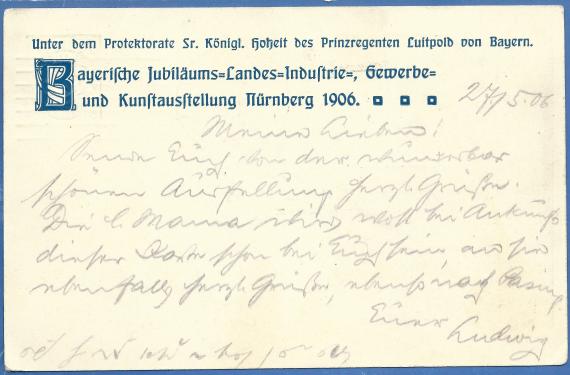 Unter dem Protektorate Sr. Königl. Hoheit des Prinzregenten Luitpold von Bayern.
Bayerische Jubiläums-Landes-Industrie-, Gewerbe-
und Kunstausstellung Nürnberg 1906.
27/5.06
Meine Lieben!
Sende Euch von der wunderbar
schönen Ausstellung herzl. Grüße.
Die l. Mama wird wohl bei Ankunft
dieser Karte schon bei Euch sein, an sie
ebenfalls herzl. Grüße, ebenso nach Pasing
Euer Ludwig